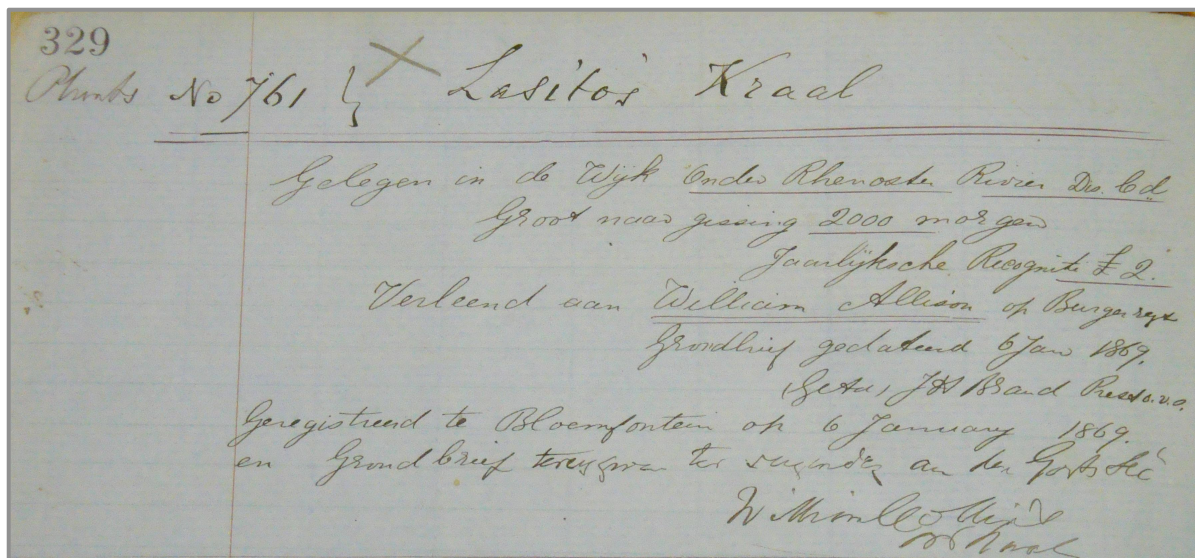 329
No 761 } X Lasito's Kraal
Gelegen in de Wijk Onder Rhenoster Rivier Dis. Cd
Groot naar gissing 2000 morgen
Jaarlijksche Recognitie £ 2.
Verleend aan William Allison op Burgerregt
Grondbrief gedateerd 6 Jan 1869.
(Getd) JH Brand Pres. O.V.S.
Geregistreerd te Bloemfontein op 6 January 1869.
en Grondbrief ter aan den Govts Sec
William Collins